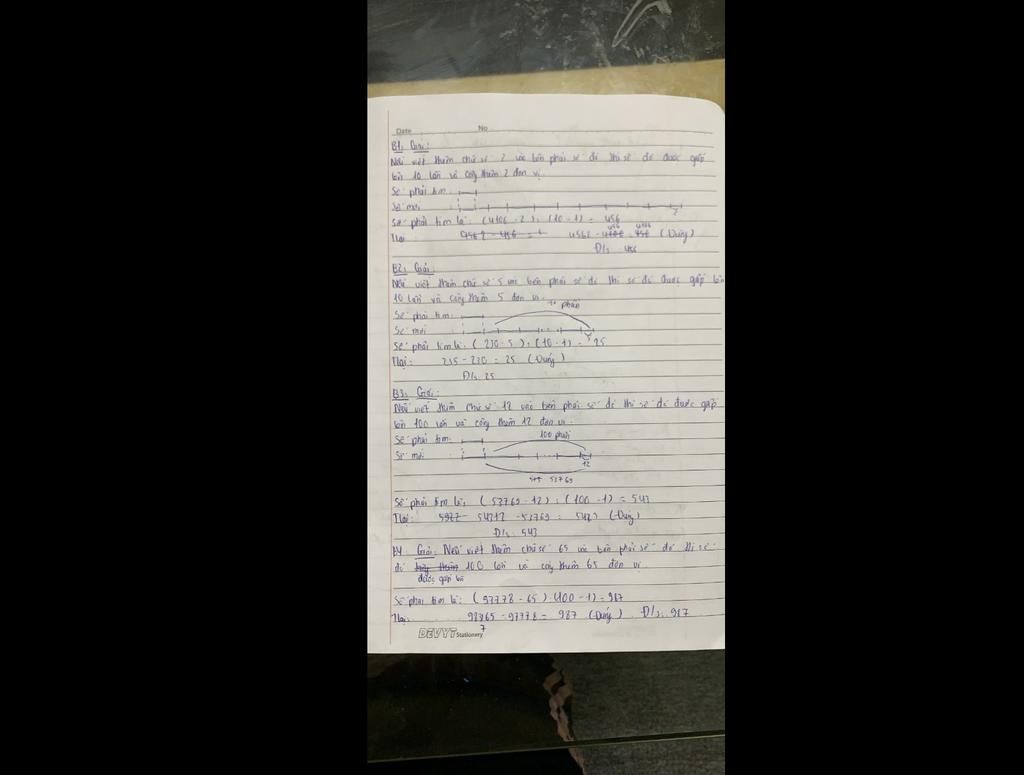 Date No
B1: Giải:
Nếu viết thêm chữ số 2 vào bên phải số đó thì số đó được gấp
lên 10 lần và cộng thêm 2 đơn vị.
Số phải tìm:
Số mới
2
Số phải tìm là: (4106 - 2) : (10 - 1) = 456
Thử: 4562 - 456 = 4562 - 4106 = 456 (Đúng)
Đ/s: 456
B2: Giải:
Nếu viết thêm chữ số 5 vào bên phải số đó thì số đó được gấp lên
10 lần và cộng thêm 5 đơn vị.
phần
Số phải tìm:
Số mới
5
Số phải tìm là: (230 - 5) : (10 - 1) = 25
Thử: 255 - 230 = 25 (Đúng)
Đ/s: 25
B3: Giải:
Nếu viết thêm chữ số 12 vào bên phải số đó thì số đó được gấp
lên 100 lần và cộng thêm 12 đơn vị.
Số phải tìm: 100 phần
Số mới
12
53769
Số phải tìm là: (53769 - 12) : (100 - 1) = 543
Thử: 54312 - 53769 = 543 (Đúng)
Đ/s: 543
B4: Giải: Nếu viết thêm chữ số 65 vào bên phải số đó thì số
đó được gấp lên 100 lần và cộng thêm 65 đơn vị.
Số phải tìm là: (97778 - 65) : (100 - 1) = 987
Thử: 98765 - 97778 = 987 (Đúng) Đ/s: 987
DEVYT Stationery
7